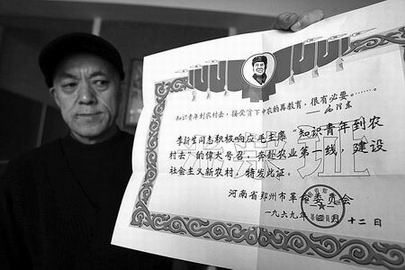 知识青年到农村去,接受贫下中农的再教育,很有必要……
——毛泽东
同志积极响应毛主席“知识青年到农
村去”的伟大号召,奔赴农业第一线,建设
社会主义新农村,特发此证。
河南省郑州市革命委员会
一九六九年 月 十二日